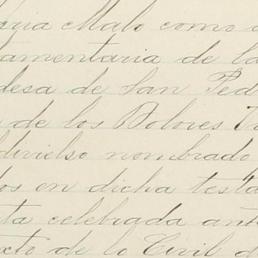 aria Malo como a
amentaria de la
desa de San Ped
a de los Dolores Va
divielso nombrado
dos en dicha testa
ta celebrada ant
exto de lo Civil d